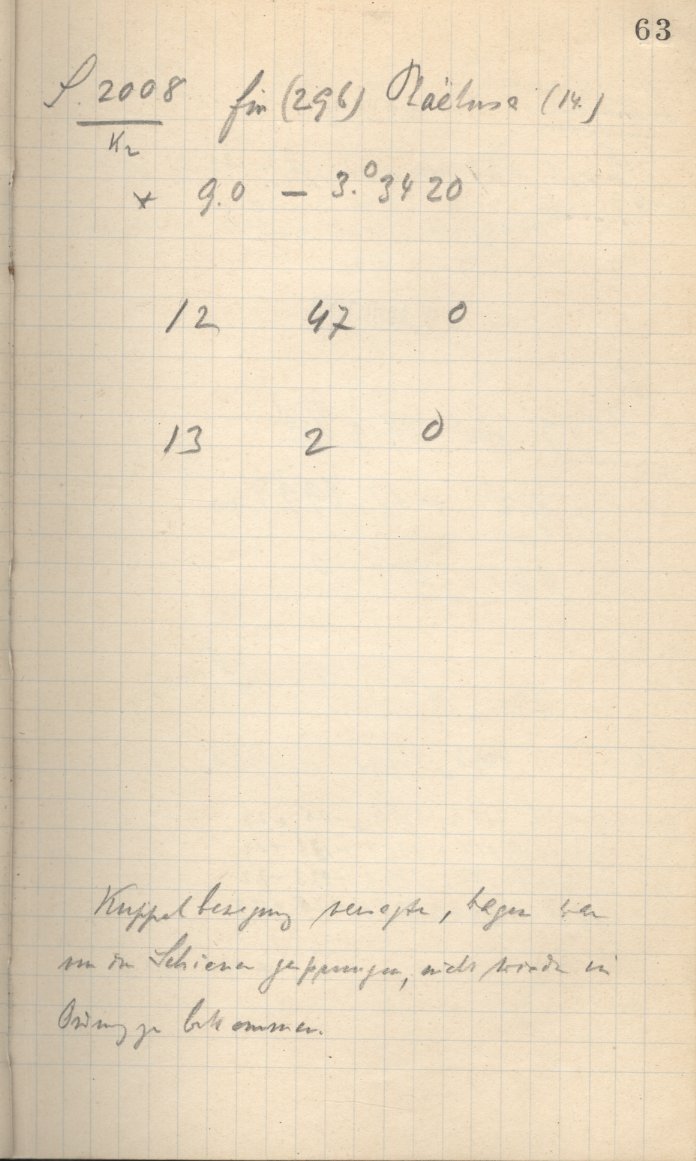 63
S. 2008 für (296) Phaëtusa (14.)
K2
* 9.0 — 3.°3420
12 47 0
13 2 0
Kuppelbewegung versagte, Wagen war
von den Schienen gesprungen, nicht wieder in
Ordnung zu bekommen.